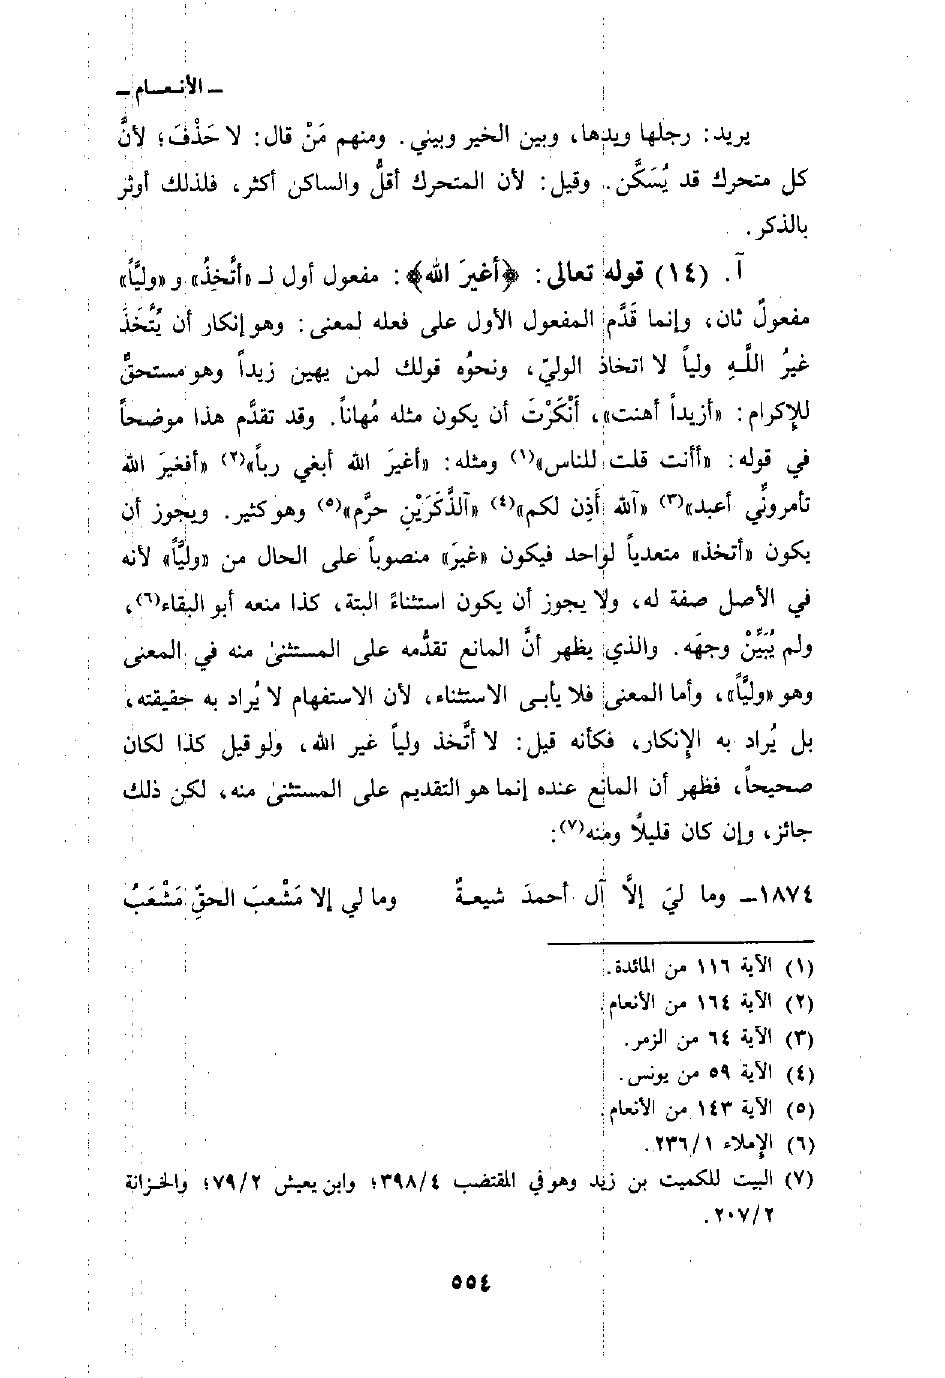 ـ الأنعـام ـ
يريد: رجلها ويدها، وبين الخير وبيني. ومنهم مَنْ قال: لا حَذْفَ؛ لأنَّ
كل متحرك قد يُسَكَّن. وقيل: لأن المتحرك أقلُّ والساكن أكثر، فلذلك أوثر
بالذكر.
آ. (١٤) قوله تعالى: ﴿أغيرَ الله﴾: مفعول أول لـ «أتَّخِذُ» و «وليَّاً»
مفعولٌ ثان، وإنما قَدَّم المفعول الأول على فعله لمعنى: وهو إنكار أن يُتَّخَذَ
غيرُ اللَّهِ ولياً لا اتخاذ الوليّ، ونحوُه قولك لمن يهين زيداً وهو مستحقٌّ
للإِكرام: «أزيداً أهنت»، أَنْكَرْتَ أن يكون مثله مُهاناً. وقد تقدَّم هذا موضحاً
في قوله: «أأنت قلت للناس»(١) ومثله: «أغيرَ الله أبغي رباً»(٢) «أفغيرَ الله
تأمرونِّي أعبد»(٣) «آلله أَذِن لكم»(٤) «آلذَّكَرَيْنِ حرَّم»(٥) وهو كثير. ويجوز أن
يكون «أتخذ» متعدياً لواحد فيكون «غيرَ» منصوباً على الحال من «وليَّاً» لأنه
في الأصل صفة له، ولا يجوز أن يكون استثناءً البتة، كذا منعه أبو البقاء(٦)،
ولم يُبَيِّنْ وجهَه. والذي يظهر أنَّ المانع تقدُّمه على المستثنىٰ منه في المعنى
وهو «وليَّاً»، وأما المعنى فلا يأبى الاستثناء، لأن الاستفهام لا يُراد به حقيقته،
بل يُراد به الإِنكار، فكأنه قيل: لا أتَّخذ ولياً غير الله، ولو قيل كذا لكان
صحيحاً، فظهر أن المانع عنده إنما هو التقديم على المستثنىٰ منه، لكن ذلك
جائز، وإن كان قليلًا ومنه(٧):
١٨٧٤ـ وما ليَ إلَّا آل أحمدَ شيعةٌ وما لي إلا مَشْعبَ الحقِّ مَشْعَبُ
(١) الآية ١١٦ من المائدة.
(٢) الآية ١٦٤ من الأنعام.
(٣) الآية ٦٤ من الزمر.
(٤) الآية ٥٩ من يونس.
(٥) الآية ١٤٣ من الأنعام.
(٦) الإملاء ٢٣٦/١.
(٧) البيت للكميت بن زيد وهو في المقتضب ٣٩٨/٤؛ وابن يعيش ٧٩/٢؛ والخزانة
٢٠٧/٢.
٥٥٤